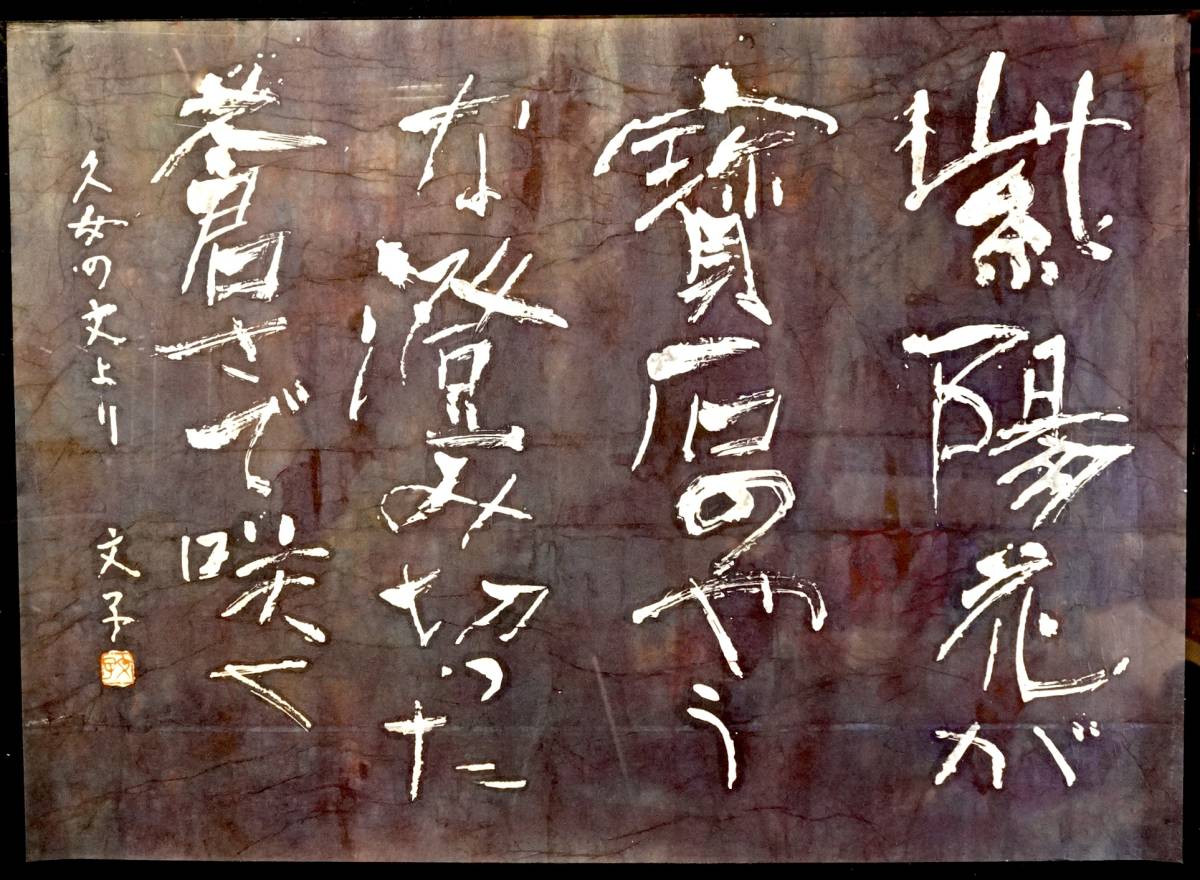 紫陽花が
寶石のやう
な澄み切った
蒼さで咲く
久女の文より 文子